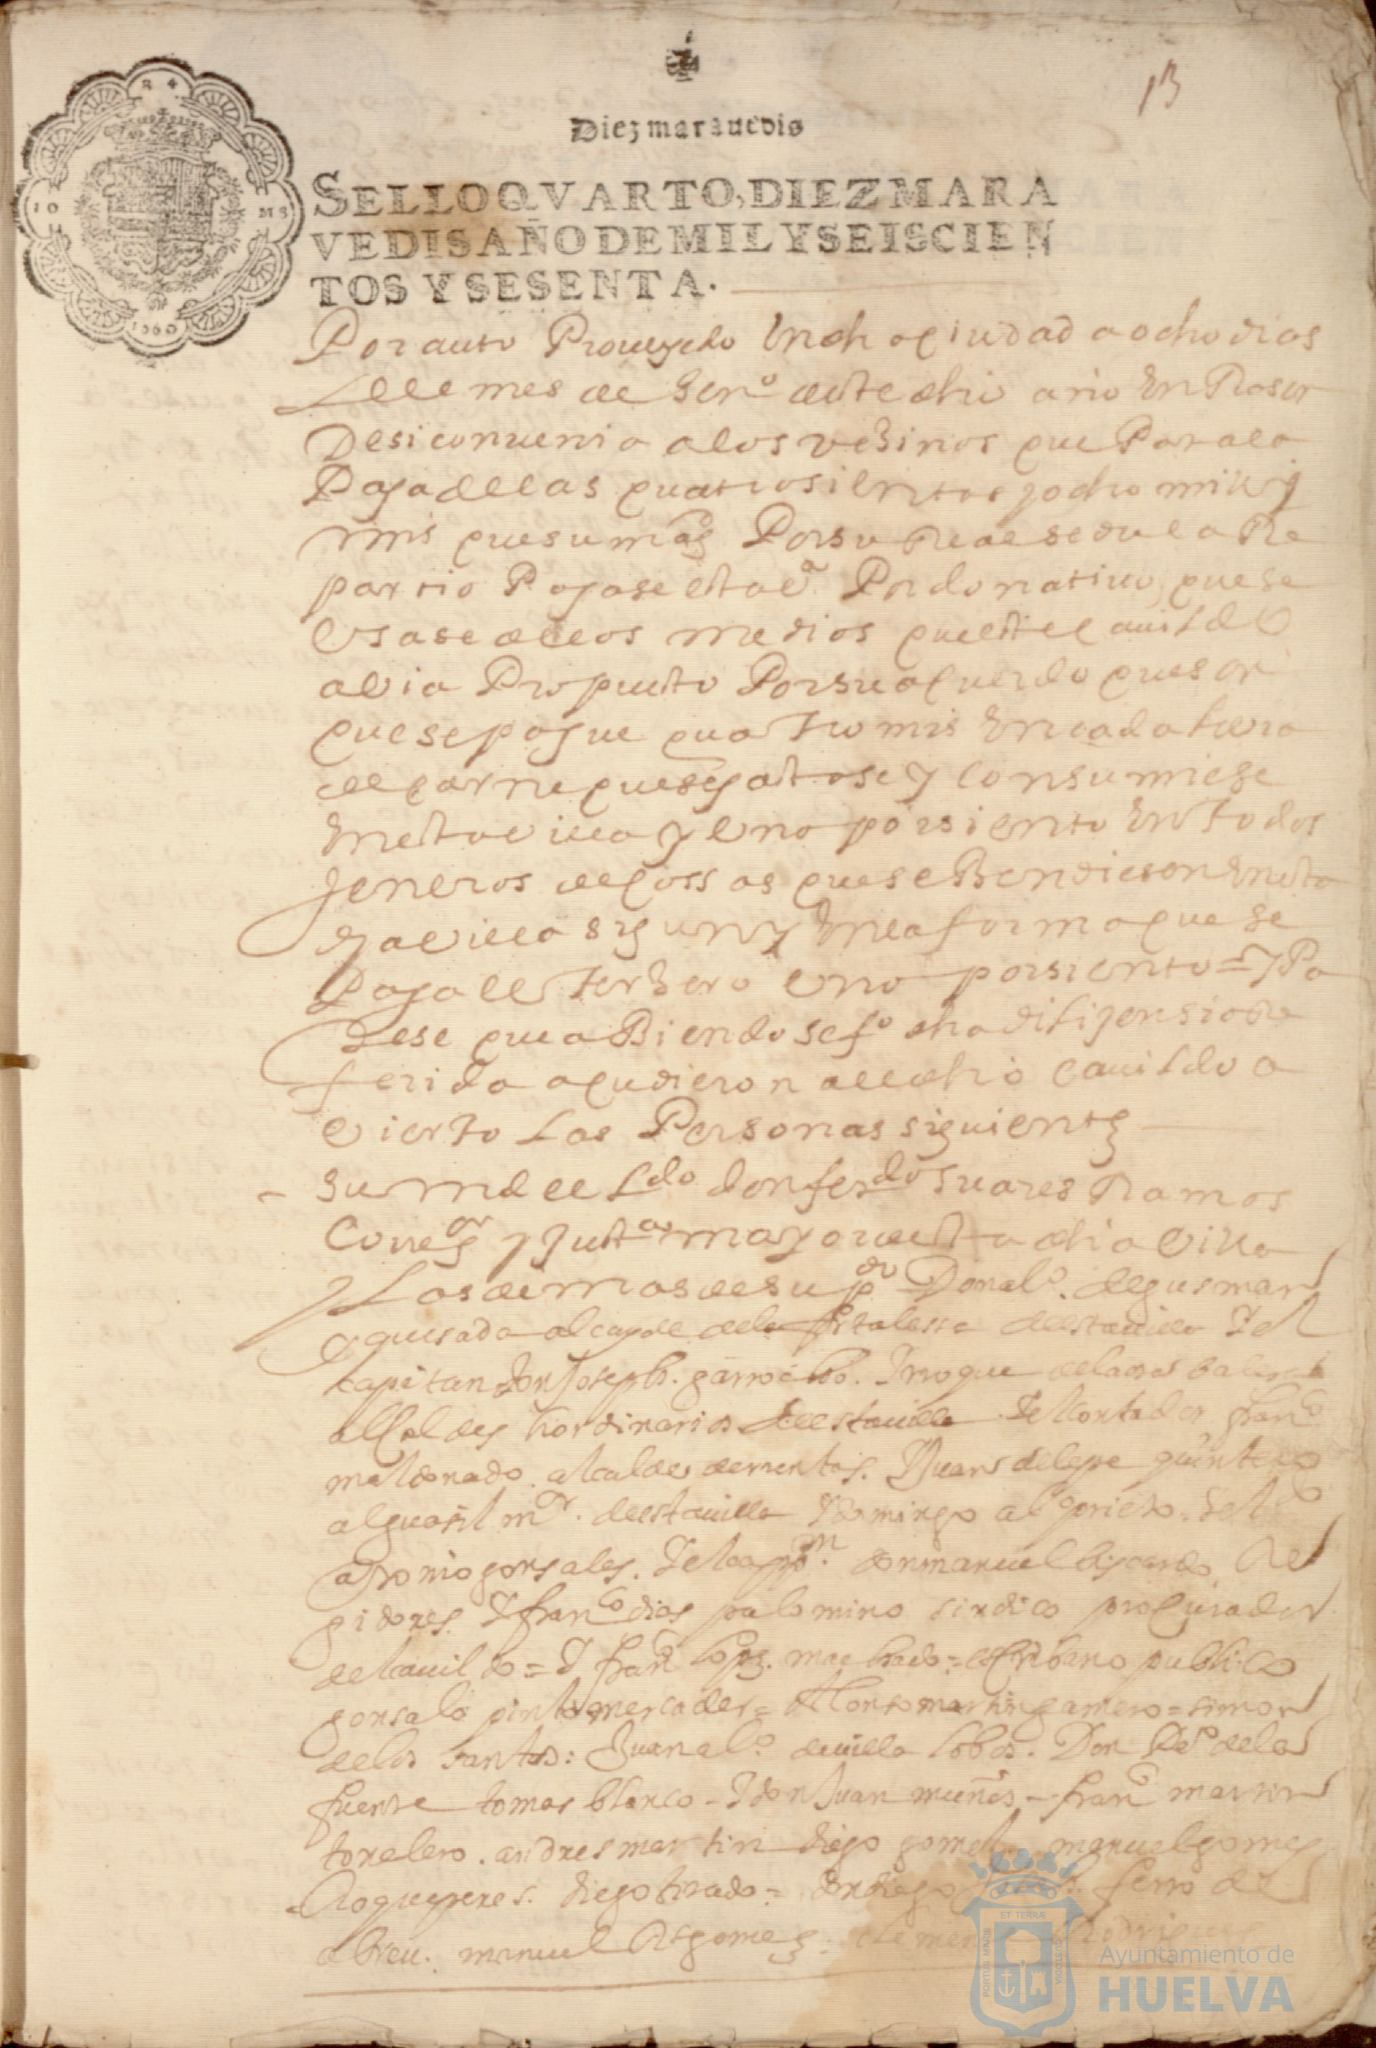 13
Diez marauedis
SELLO QVARTO, DIEZ MARA
VEDIS AÑO DE MIL Y SEISCIEN
TOS Y SESENTA.
10 MS
1660
Por auto Proueydo En dha çiudad a ocho dias
del mes de Henº deste dho año En Rason
De si conuenia a los veSinos que Para la
Paga de llas quatrosientos y ocho mill
mrs que su magᵈ Por su Real sedula Re
partio Pagase esta vª Por donatiuo, que se
Vsase de los medios que este cauildo
avia Propuesto Por su aquerdo que son
que se pague quatro mrs En cada libra
de carne que se gastase y Consumiese
En esta villa y Vno por siento En todos
generos de Cossas que se Bendiesen En esta
dha villa sigun y En la forma que se
Paga el terSero Vno por siento = y Pa
rese que aBiendose fº dha diligensia Re
ferida acudieron al dho cauildo a
Vierto Las Personas siguientes
su md el Ldo don ferdo Suares Ramos
Correg.or y Justª mayor desta dha Villa
y Los demas de su pº Don Alº. de gusman
quesada alcayde de la fortalessa desta uilla Y el
capitan don Joseph. garrocho. Y roque de la
allcaldes hordinarios de esta uilla Y el Contador franco
maldonado alcalde Y Juan de lepe quintero
alguasil mor. de esta uilla Y domingo alº prieto. Y el
antonio gonsales. Y el cappn. don manuel biscardo Re
gidores. Y franco dias palomino sindico procurador
del cauildo = Y franco lopes. machado = escribano publico
gonsalo pinto mercader = Alonso martin gamero = simon
de los santos: Juan alº. de uilla lobos. Don Peº de la
fuente tomas blanco - Y don Juan muños - franco martin
tonelero. andres martin diego gomes manuel gomes
Roque peres. diego tirado = don diego ferro de
abreu. manuel Rs gomes: Rodrigues
PORTUS MARIS ET TERRAE CUSTODIA
Ayuntamiento de
HUELVA